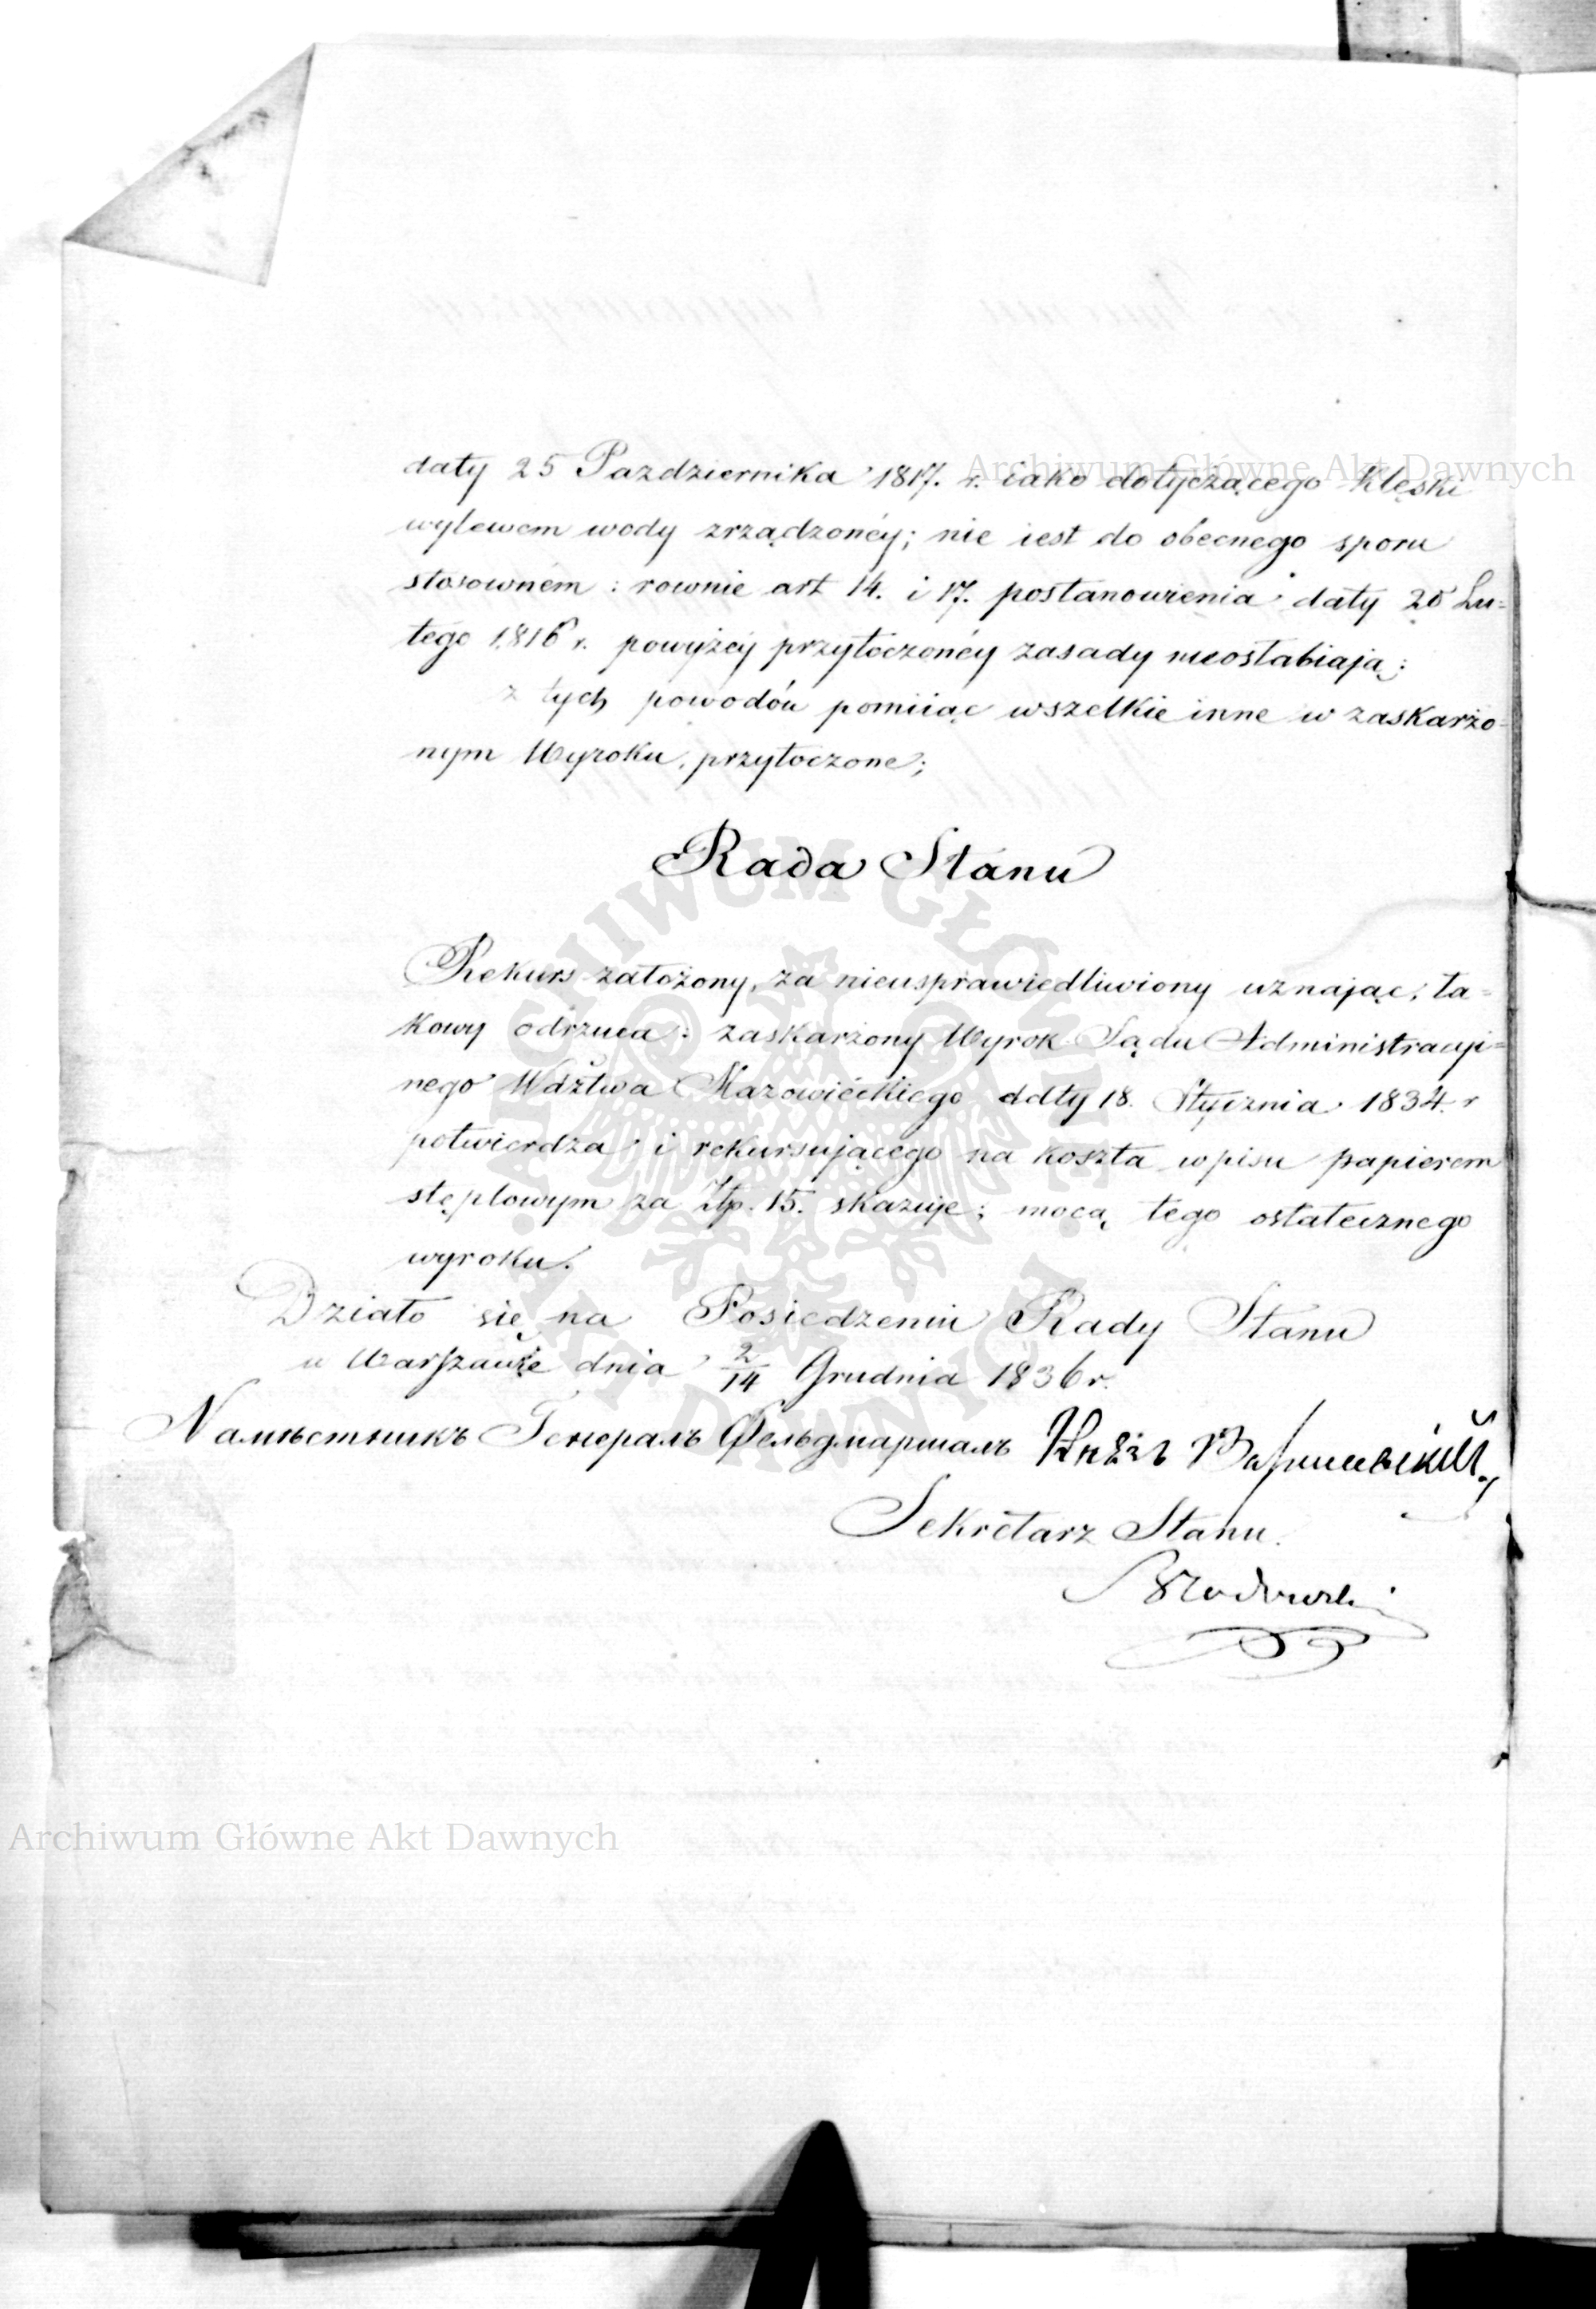 daty 25 Pazdziernika 1817. r. iako dotyczącego klęski
wylewem wody zrządzonéy; nie iest do obecnego sporu
stosownem: rownie art 14. i 17. postanowienia daty 20 Lu=
tego 1816 r. powyżéy przytoczonéy zasady nieosłabiają;
z tych powodów pomiiaç wszelkie inne w zaskarżo-
nym Wyroku, przytoczone;
Rada Stanu
Rekurs założony, za nieusprawiedliwiony uznając, ta=
kowy odrzuca: zaskarżony Wyrok Sądu Administracyi=
nego Wdztwa Mazowiéckiego ddty 18. Stycznia 1834. r
potwierdza i rekursującego na koszta wpisu papierem
stęplowym za Złp. 15. skazuje; mocą tego ostatecznego
wyroku.
Działo się na Posiedzeniu Rady Stanu
w Warszawie dnia 2/14 Grudnia 1836 r.
Намѣстникъ Генералъ Фельдмаршалъ Князь Варшавскій
Sekretarz Stanu.
Archiwum Główne Akt Dawnych
Archiwum Główne Akt Dawnych
ARCHIWUM GŁÓWNE AKT DAWNYCH